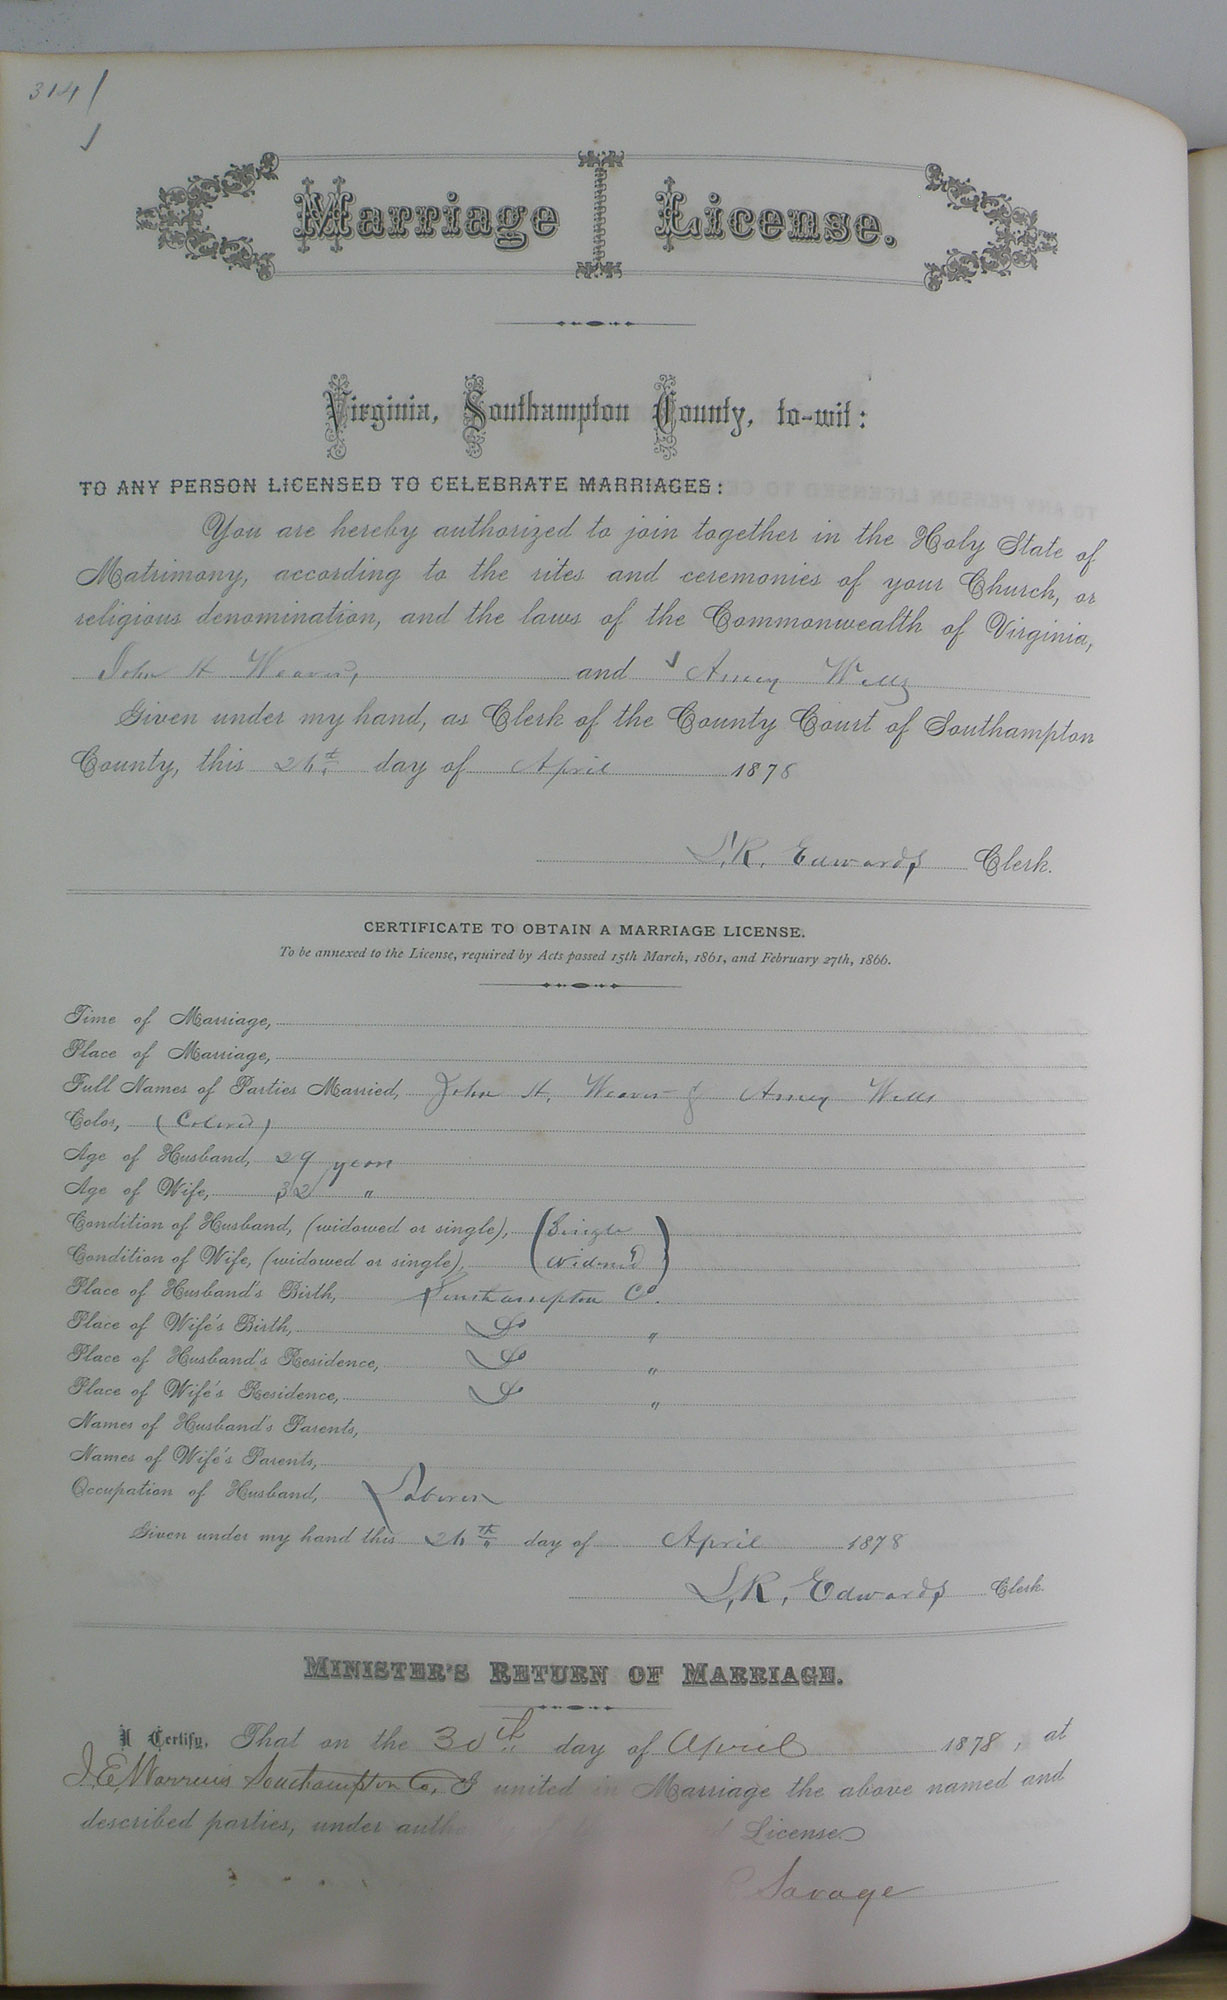 314
Marriage License.
Virginia, Southampton County, to-wit:
TO ANY PERSON LICENSED TO CELEBRATE MARRIAGES:
You are hereby authorized to join together in the Holy State of
Matrimony, according to the rites and ceremonies of your Church, or
religious denomination, and the laws of the Commonwealth of Virginia,
John H Weaver, and Amey Wells
Given under my hand, as Clerk of the County Court of Southampton
County, this 26th day of April 1878
L.R. Edwards Clerk.
CERTIFICATE TO OBTAIN A MARRIAGE LICENSE.
To be annexed to the License, required by Acts passed 15th March, 1861, and February 27th, 1866.
Time of Marriage,
Place of Marriage,
Full Names of Parties Married, John H. Weaver & Amey Wells
Color, (Colored)
Age of Husband, 29 years
Age of Wife, 32 "
Condition of Husband, (widowed or single), (Single
Condition of Wife, (widowed or single), Widowed)
Place of Husband's Birth, Southampton Co.
Place of Wife's Birth, Do "
Place of Husband's Residence, Do "
Place of Wife's Residence, Do "
Names of Husband's Parents,
Names of Wife's Parents,
Occupation of Husband, Laborer
Given under my hand this 26th day of April 1878
L.R. Edwards Clerk.
MINISTER'S RETURN OF MARRIAGE.
I Certify, That on the 30th day of April 1878, at
J.E. Southampton Co, I united in Marriage the above named and
described parties, under License
Savage